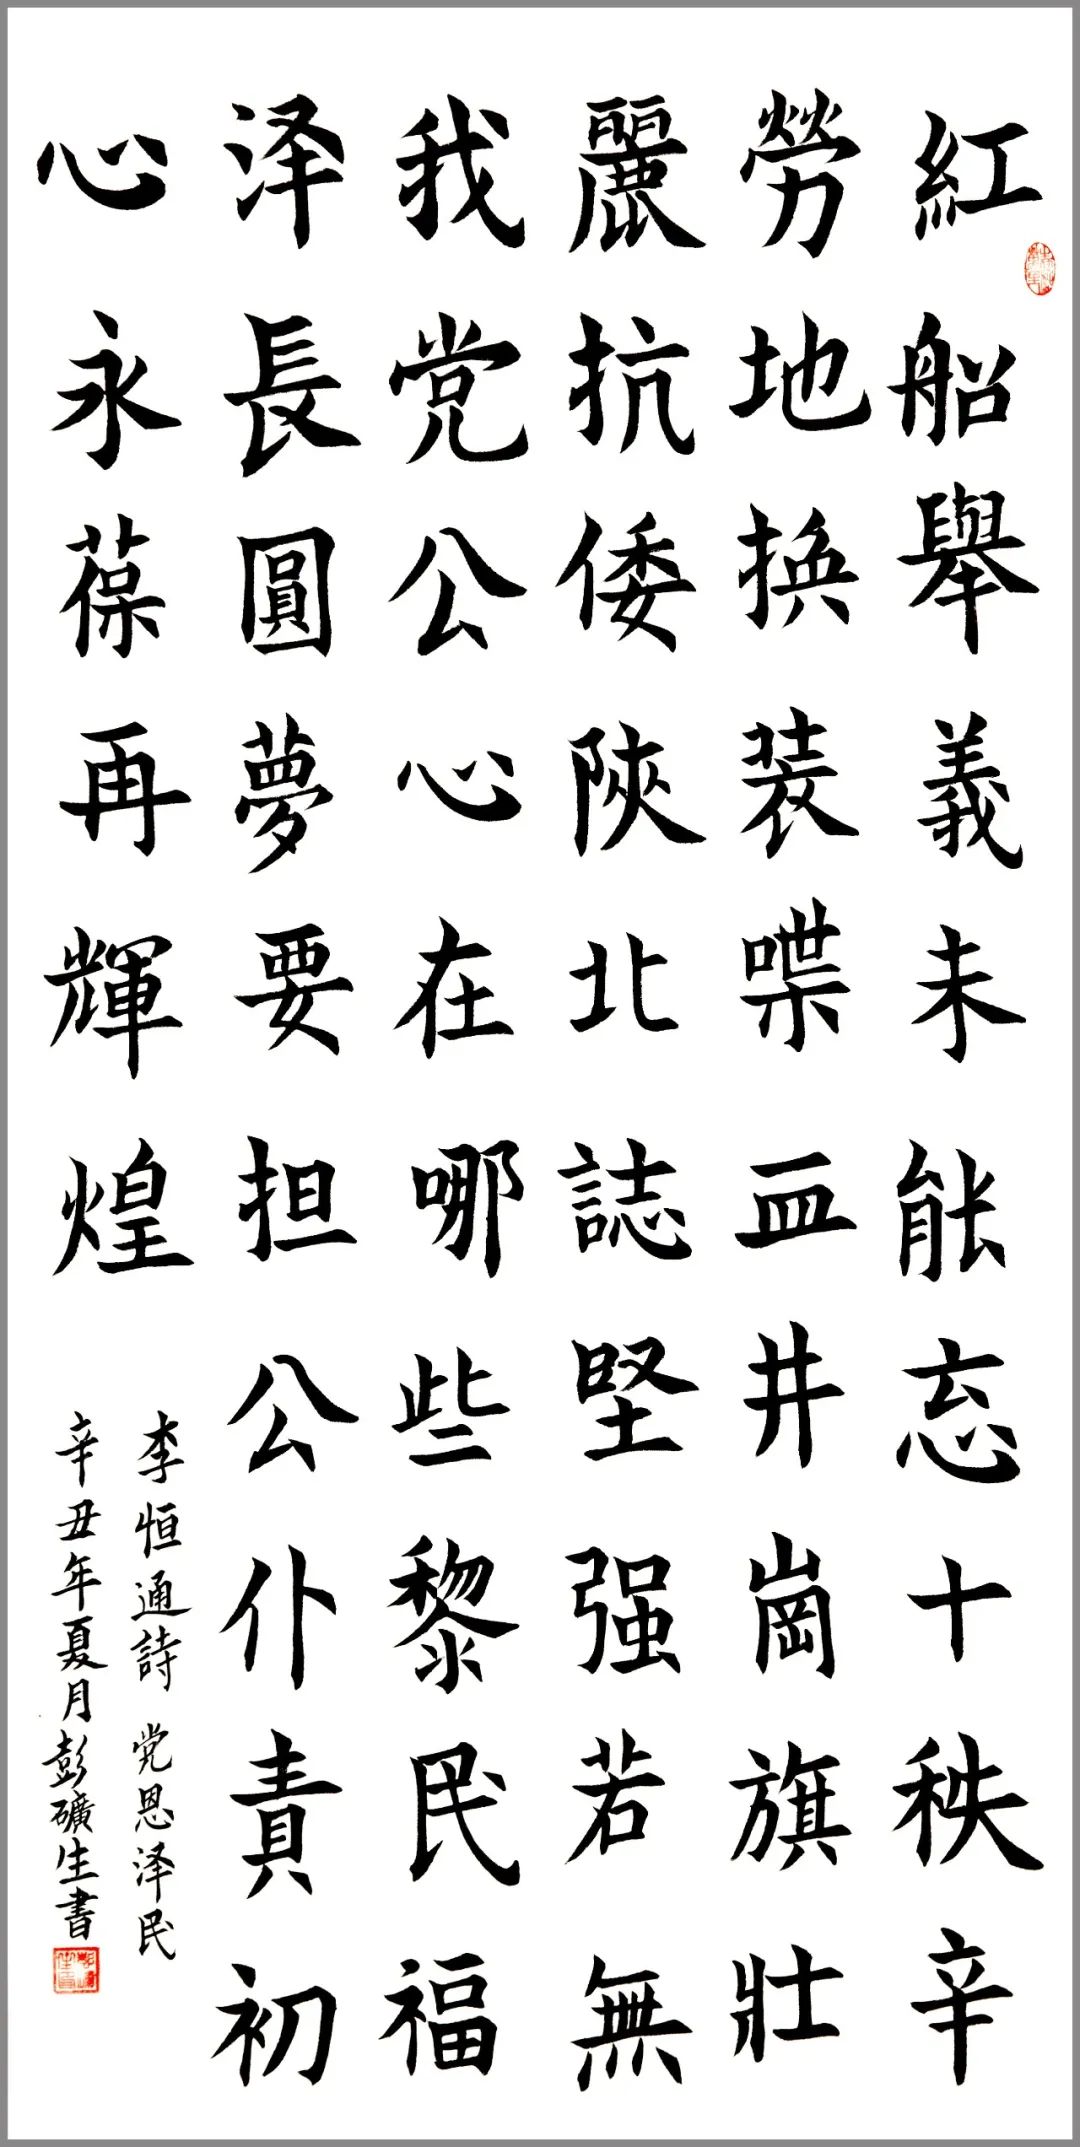 紅船舉義未能忘十秩辛
勞地换装喋血井崗旗壯
麗抗倭陝北誌堅强若無
我党公心在哪些黎民福
泽長圓夢要担公仆責初
心永葆再輝煌
李恒通詩 党恩泽民
辛丑年夏月彭礦生書